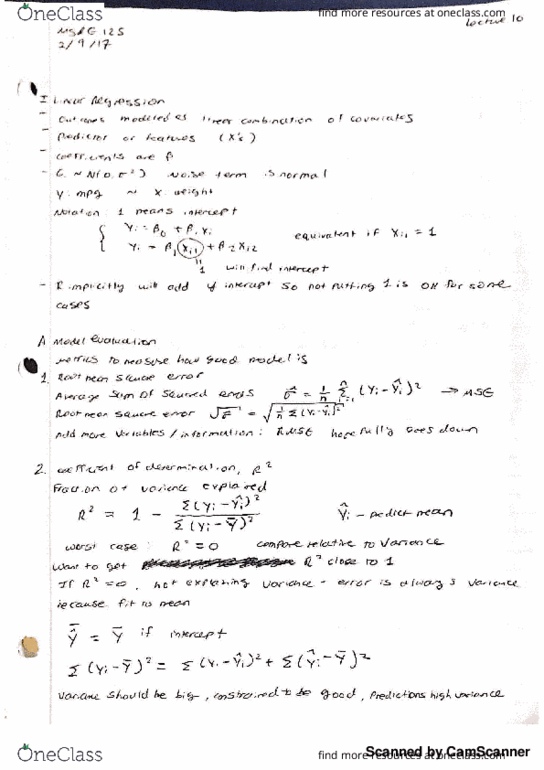 OneClass
find more resources at oneclass.com
find more resources at oneclass.com
Lecture 10
MSRE 125
2/9/17
I Linear Regression
- Outcomes modeled as linear combination of covariates
- Predictor or features (X's)
- coefficients are β
- ε ~ N(0, σ²) Noise term is normal
Y: mpg ~ X: weight
Notation: 1 means intercept
Yi = β0 + β1 Xi equivalent if Xi1 = 1
Yi = β1 Xi1 + β2 Xi2
1 will find intercept
- R implicitly will add intercept so not putting 1 is ok for some
cases
A Model evaluation
metrics to measure how good model is
1. Root mean square error
Average sum of squared = 1/n Σ (Yi - Ŷi)² → MSE
Root mean square error = √(1/n Σ(Yi - Ŷi)²)
Add more variables / information: RMSE hopefully goes down
2. coefficient of determination, R²
Fraction of variance explained
R² = 1 - Σ(Yi - Ŷi)² / Σ(Yi - Ȳ)² Ŷi - predict mean
worst case: R² = 0 compare relative to variance
Want to get R² close to 1
If R² = 0, not explaining variance - error is always variance
because fit is mean
Ŷ = Ȳ if intercept
Σ(Yi - Ȳ)² = Σ(Yi - Ŷi)² + Σ(Ŷi - Ȳ)²
Variance should be big, constrained to be good, predictions high variance
OneClass
find more resources at oneclass.com
Scanned by CamScanner